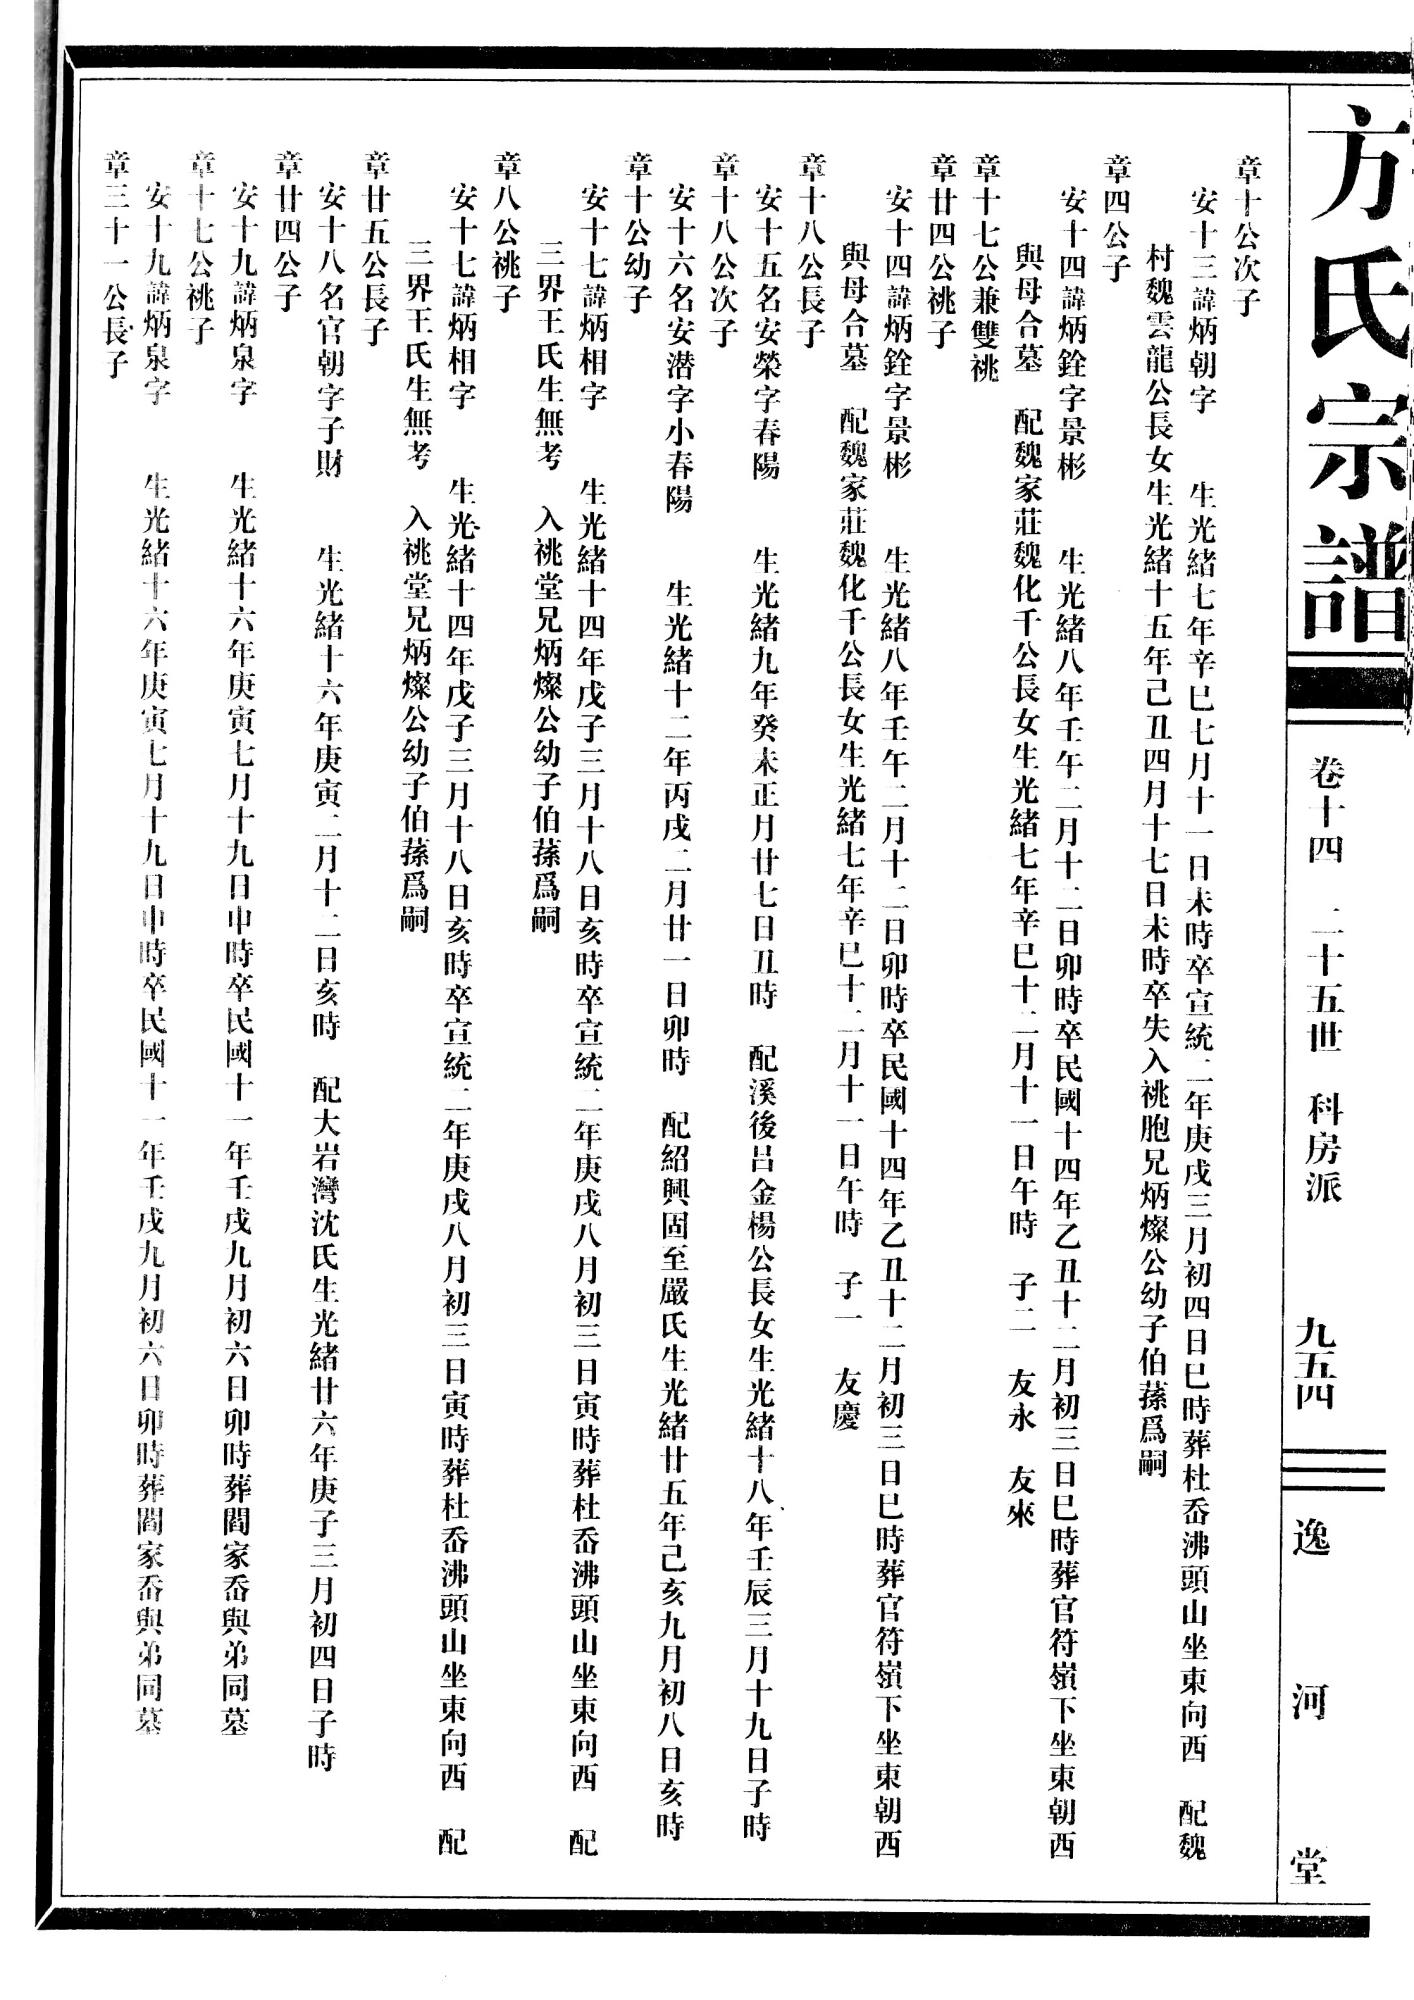 方氏宗譜
卷十四　二十五世　科房派　九五四
逸河堂
章十公次子
安十三諱炳朝字　　生光緒七年辛巳七月十一日未時卒宣統二年庚戌三月初四日巳時葬杜岙沸頭山坐東向西　配魏
村魏雲龍公長女生光緒十五年己丑四月十七日未時卒失入祧胞兄炳燦公幼子伯蓀爲嗣
章四公子
安十四諱炳銓字景彬　　生光緒八年壬午二月十二日卯時卒民國十四年乙丑十二月初三日巳時葬官符嶺下坐東朝西
與母合墓　配魏家莊魏化千公長女生光緒七年辛巳十二月十一日午時　子二　友永　友來
章十七公兼雙祧
章廿四公祧子
安十四諱炳銓字景彬　　生光緒八年壬午二月十二日卯時卒民國十四年乙丑十二月初三日巳時葬官符嶺下坐東朝西
與母合墓　配魏家莊魏化千公長女生光緒七年辛巳十二月十一日午時　子一　友慶
章十八公長子
安十五名安榮字春陽　　生光緒九年癸未正月廿七日丑時　配溪後呂金楊公長女生光緒十八年壬辰三月十九日子時
章十八公次子
安十六名安潛字小春陽　　生光緒十二年丙戌二月廿一日卯時　配紹興固至嚴氏生光緒廿五年己亥九月初八日亥時
章十公幼子
安十七諱炳相字　　生光緒十四年戊子三月十八日亥時卒宣統二年庚戌八月初三日寅時葬杜岙沸頭山坐東向西　配
三界王氏生無考　入祧堂兄炳燦公幼子伯蓀爲嗣
章八公祧子
安十七諱炳相字　　生光緒十四年戊子三月十八日亥時卒宣統二年庚戌八月初三日寅時葬杜岙沸頭山坐東向西　配
三界王氏生無考　入祧堂兄炳燦公幼子伯蓀爲嗣
章廿五公長子
安十八名官朝字子財　　生光緒十六年庚寅二月十二日亥時　配大岩灣沈氏生光緒廿六年庚子三月初四日子時
章廿四公子
安十九諱炳泉字　　生光緒十六年庚寅七月十九日申時卒民國十一年壬戌九月初六日卯時葬閻家岙與弟同墓
章十七公祧子
安十九諱炳泉字　　生光緒十六年庚寅七月十九日申時卒民國十一年壬戌九月初六日卯時葬閻家岙與弟同墓
章三十一公長子